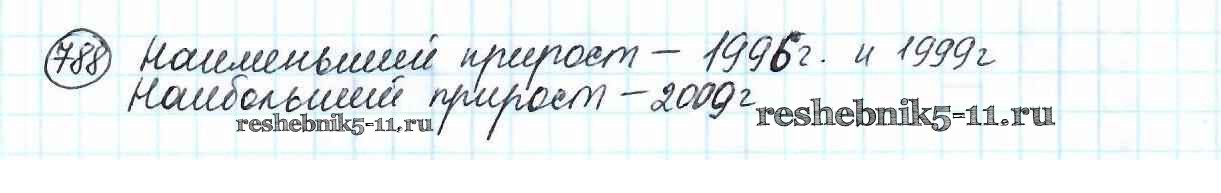 788 Наименьший прирост – 1996г. и 1999г
Наибольший прирост – 2009г
reshebnik5-11.ru
reshebnik5-11.ru